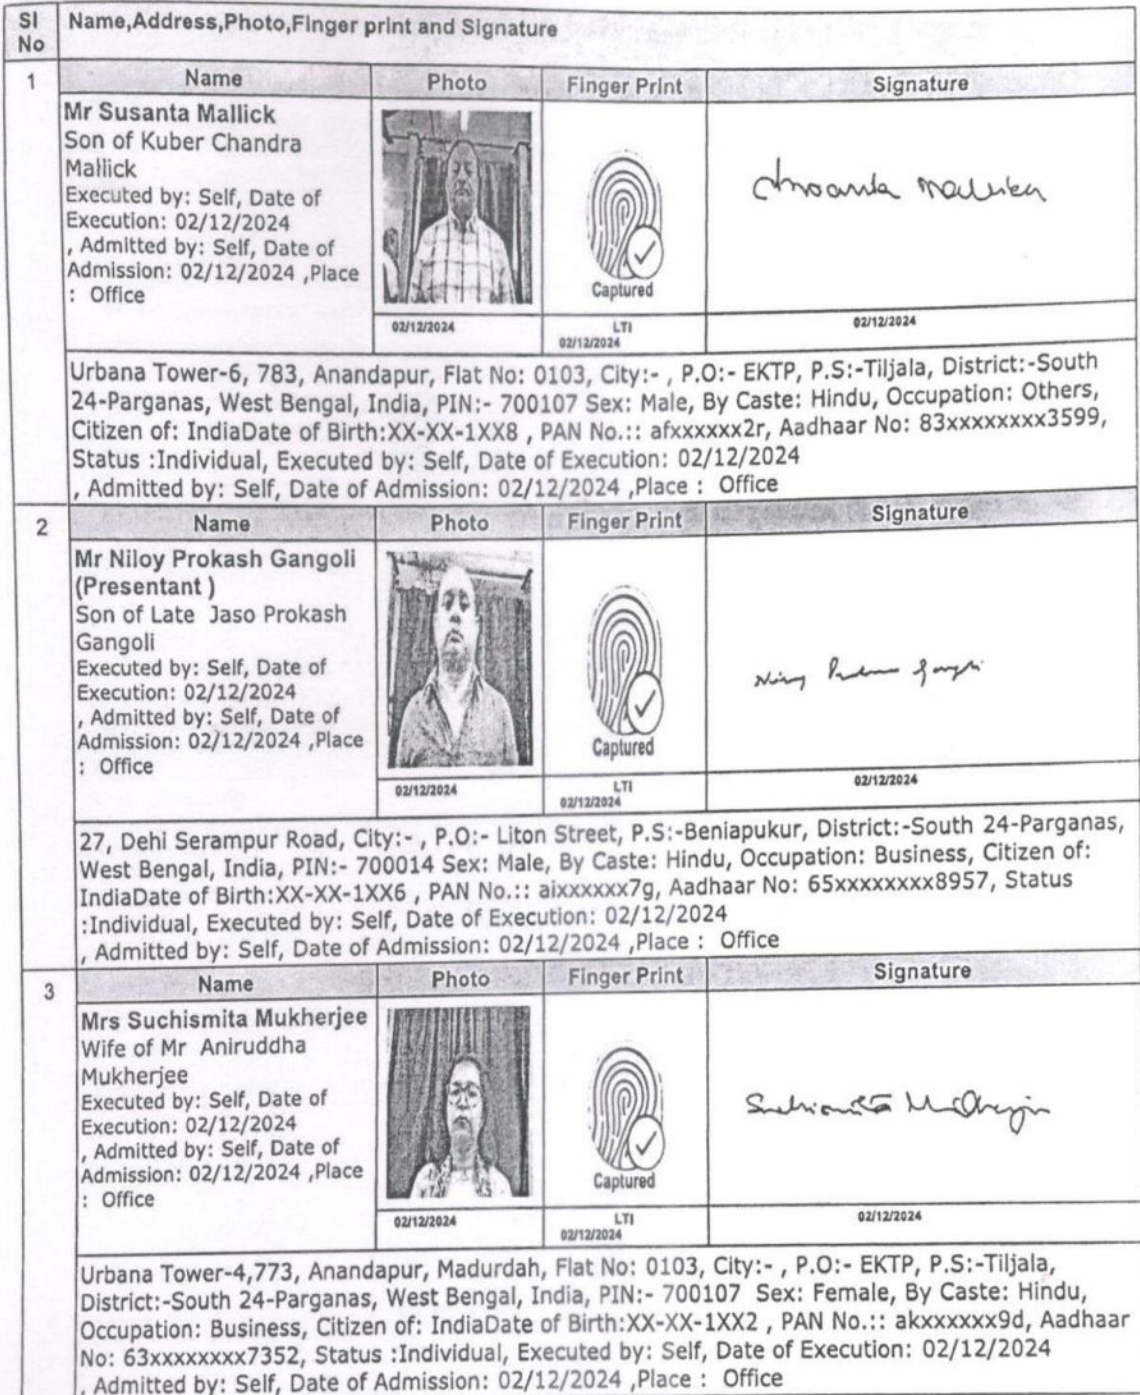 Sl No
Name,Address,Photo,Finger print and Signature
1
Name
Photo
Finger Print
Signature
Mr Susanta Mallick
Son of Kuber Chandra
Mallick
Executed by: Self, Date of
Execution: 02/12/2024
, Admitted by: Self, Date of
Admission: 02/12/2024 ,Place
: Office
Captured
Susanta Mallick
02/12/2024
LTI
02/12/2024
02/12/2024
Urbana Tower-6, 783, Anandapur, Flat No: 0103, City:- , P.O:- EKTP, P.S:-Tiljala, District:-South
24-Parganas, West Bengal, India, PIN:- 700107 Sex: Male, By Caste: Hindu, Occupation: Others,
Citizen of: IndiaDate of Birth:XX-XX-1XX8 , PAN No.:: afxxxxxx2r, Aadhaar No: 83xxxxxxxx3599,
Status :Individual, Executed by: Self, Date of Execution: 02/12/2024
, Admitted by: Self, Date of Admission: 02/12/2024 ,Place : Office
2
Name
Photo
Finger Print
Signature
Mr Niloy Prokash Gangoli
(Presentant )
Son of Late Jaso Prokash
Gangoli
Executed by: Self, Date of
Execution: 02/12/2024
, Admitted by: Self, Date of
Admission: 02/12/2024 ,Place
: Office
Captured
02/12/2024
LTI
02/12/2024
02/12/2024
27, Dehi Serampur Road, City:- , P.O:- Liton Street, P.S:-Beniapukur, District:-South 24-Parganas,
West Bengal, India, PIN:- 700014 Sex: Male, By Caste: Hindu, Occupation: Business, Citizen of:
IndiaDate of Birth:XX-XX-1XX6 , PAN No.:: aixxxxxx7g, Aadhaar No: 65xxxxxxxx8957, Status
:Individual, Executed by: Self, Date of Execution: 02/12/2024
, Admitted by: Self, Date of Admission: 02/12/2024 ,Place : Office
3
Name
Photo
Finger Print
Signature
Mrs Suchismita Mukherjee
Wife of Mr Aniruddha
Mukherjee
Executed by: Self, Date of
Execution: 02/12/2024
, Admitted by: Self, Date of
Admission: 02/12/2024 ,Place
: Office
Captured
Suchismita Mukherjee
02/12/2024
LTI
02/12/2024
02/12/2024
Urbana Tower-4,773, Anandapur, Madurdah, Flat No: 0103, City:- , P.O:- EKTP, P.S:-Tiljala,
District:-South 24-Parganas, West Bengal, India, PIN:- 700107 Sex: Female, By Caste: Hindu,
Occupation: Business, Citizen of: IndiaDate of Birth:XX-XX-1XX2 , PAN No.:: akxxxxxx9d, Aadhaar
No: 63xxxxxxxx7352, Status :Individual, Executed by: Self, Date of Execution: 02/12/2024
, Admitted by: Self, Date of Admission: 02/12/2024 ,Place : Office